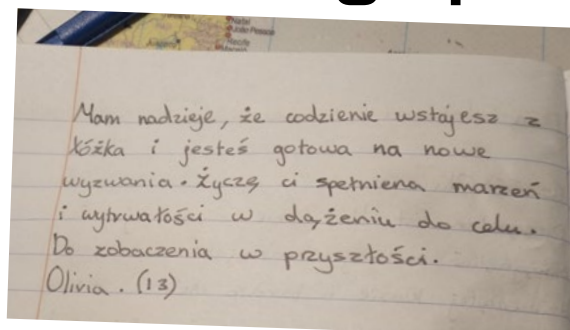 Natal
João Pessoa
Recife
Mam nadzieje, że codzienie wstajesz z
łóżka i jesteś gotowa na nowe
wyzwania. Życzę ci spełniena marzeń
i wytrwałości w dążeniu do celu.
Do zobaczenia w przyszłości.
Olivia. (13)